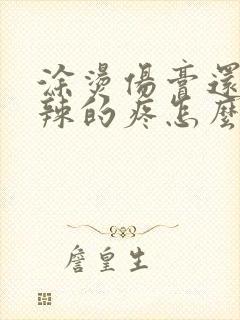 涂燙傷膏還
辣的疼怎麼
詹皇生